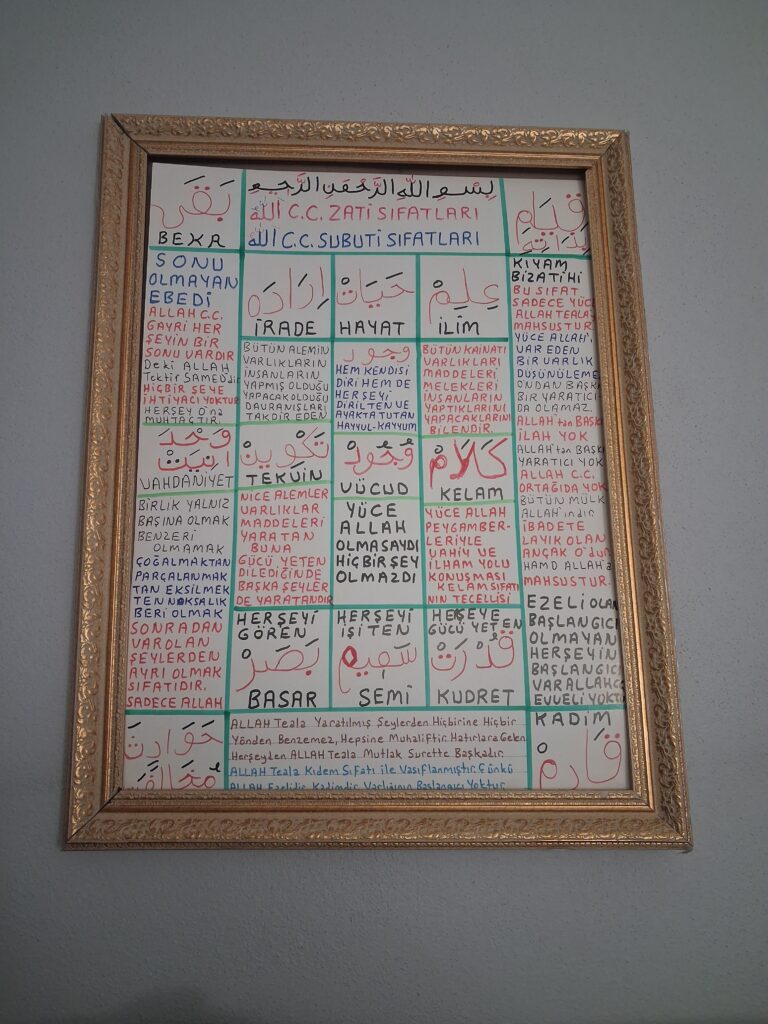 بَقَى
BEKA
بِسْمِ اللّٰهِ الرَّحْمٰنِ الرَّحِيمِ
اللّٰه C.C. ZATİ SIFATLARI
اللّٰه C.C. SUBUTİ SIFATLARI
قِيَام
بِذَاتِهِ
KIYAM
BİZATİHİ
SONU
OLMAYAN
EBEDİ
ALLAH C.C.
GAYRİ HER
ŞEYİN BİR
SONU VARDIR
Deki ALLAH
Tektir SAMED'dir
HİÇBİR ŞEYE
İHTİYACI YOKTUR
HERŞEY O'na
MUHTAÇTIR.
اِرَادَه
İRADE
BÜTÜN ALEMİN
VARLIKLARIN
İNSANLARIN
YAPMIŞ OLDUĞU
YAPACAK OLDUĞU
DAVRANIŞLARI
TAKDİR EDEN
حَيَاتْ
HAYAT
وجود
HEM KENDİSİ
DİRİ HEM DE
HERŞEYİ
DİRİLTEN VE
AYAKTA TUTAN
HAYYUL-KAYYUM
عِلِمْ
İLİM
BÜTÜN KAİNATI
VARLIKLARI
MADDELERİ
MELEKLERİ
İNSANLARIN
YAPTIKLARINI
YAPACAKLARINI
BİLENDİR.
BU SIFAT
SADECE YÜCE
ALLAH TEALA
MAHSUSTUR.
YÜCE ALLAH'I
VAR EDEN
BİR VARLIK
DÜŞÜNÜLEME
ONDAN BAŞKA
BİR YARATICI
DA OLAMAZ
ALLAH'tan BAŞKA
İLAH YOK
ALLAH'tan BAŞKA
YARATICI YOK
ALLAH C.C.
ORTAĞIDA YOK
BÜTÜN MÜLK
ALLAH'ındır
İBADETE
LAYIK OLAN
ANÇAK O'dur
HAMD ALLAH'a
MAHSUSTUR.
وَحْدَ
انِيَتْ
VAHDANİYET
BİRLİK YALNIZ
BAŞINA OLMAK
BENZERİ
OLMAMAK
ÇOĞALMAKTAN
PARÇALANMAK
TAN EKSİLMEK
TEN NOKSALIK
BERİ OLMAK
SONRADAN
VAROLAN
ŞEYLERDEN
AYRI OLMAK
SIFATIDIR.
SADECE ALLAH
تَكْوِينْ
TEKVİN
NİCE ALEMLER
VARLIKLAR
MADDELERİ
YARATAN
BUNA
GÜCÜ YETEN
DİLEDİĞİNDE
BAŞKA ŞEYLER
DE YARATANDIR
وُجُودْ
VÜCUD
YÜCE
ALLAH
OLMASAYDI
HİÇBİR ŞEY
OLMAZDI
كَلَامْ
KELAM
YÜCE ALLAH
PEYGAMBER-
LERİYLE
VAHİY VE
İLHAM YOLU
KONUŞMASI
KELAM SIFATI
NIN TECELLİSİ
HERŞEYİ
GÖREN
بَصَرْ
BASAR
HERŞEYİ
İŞİTEN
سَمِيعْ
SEMİ
HERŞEYE
GÜCÜ YETEN
قُدْرَتْ
KUDRET
EZELİ OLAN
BAŞLANGICI
OLMAYAN
HERŞEYİN
BAŞLANGICI
VAR ALLAH C
EVVELİ YOKTU
KADİM
حَوَادِثْ
مُخَالَفَتْ
ALLAH Teala Yaratılmış Şeylerden Hiçbirine Hiçbir
Yönden Benzemez, Hepsine Muhaliftir. Hatırlara Gelen
Herşeyden ALLAH Teala Mutlak Surette Başkadır.
ALLAH Teala Kıdem Sıfatı ile Vasıflanmıştır. Çünkü
ALLAH Ezelidir, Kadimdir, Varlığının Başlangıcı Yoktur.